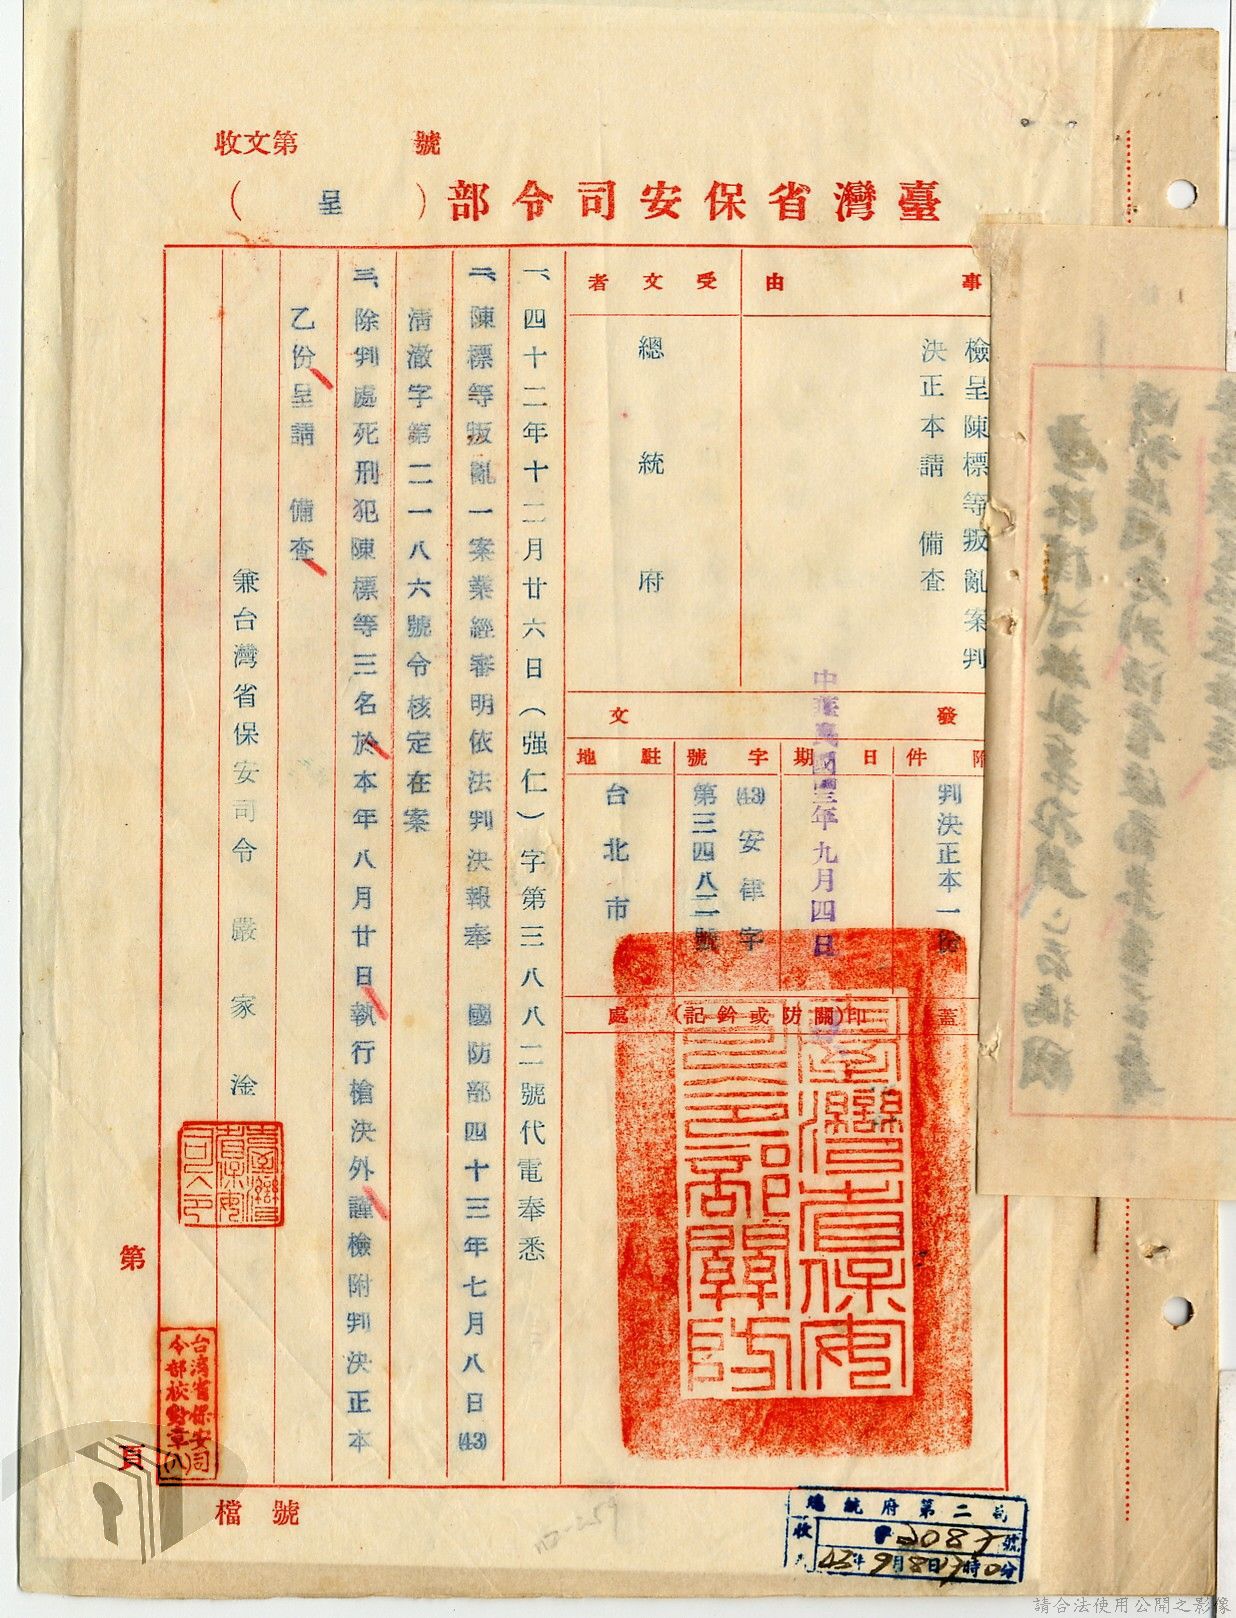 收文第　　號
臺灣省保安司令部（呈）
事由
檢呈陳標等叛亂案判
決正本請　備查
受文者
總統府
發文
附件
判決正本一份
日期
中華民國四三年九月四日
字號
(43)安律字
第三四八二號
駐地
台北市
蓋印(關防或鈐記)處
臺灣省保安司令部關防
一、四十二年十二月廿六日（强仁）字第三八八二號代電奉悉
二、陳標等叛亂一案業經審明依法判決報奉　國防部四十三年七月八日(43)
清澈字第二一八六號令核定在案
三、除判處死刑犯陳標等三名於本年八月廿日執行槍決外謹檢附判決正本
乙份呈請　備查
兼台灣省保安司令　嚴家淦
第　　頁
台灣省保安司
令部校對章(八)
檔號
總統府第二局
收　字2087號
43年9月8日17時0分
請合法使用公開之影像